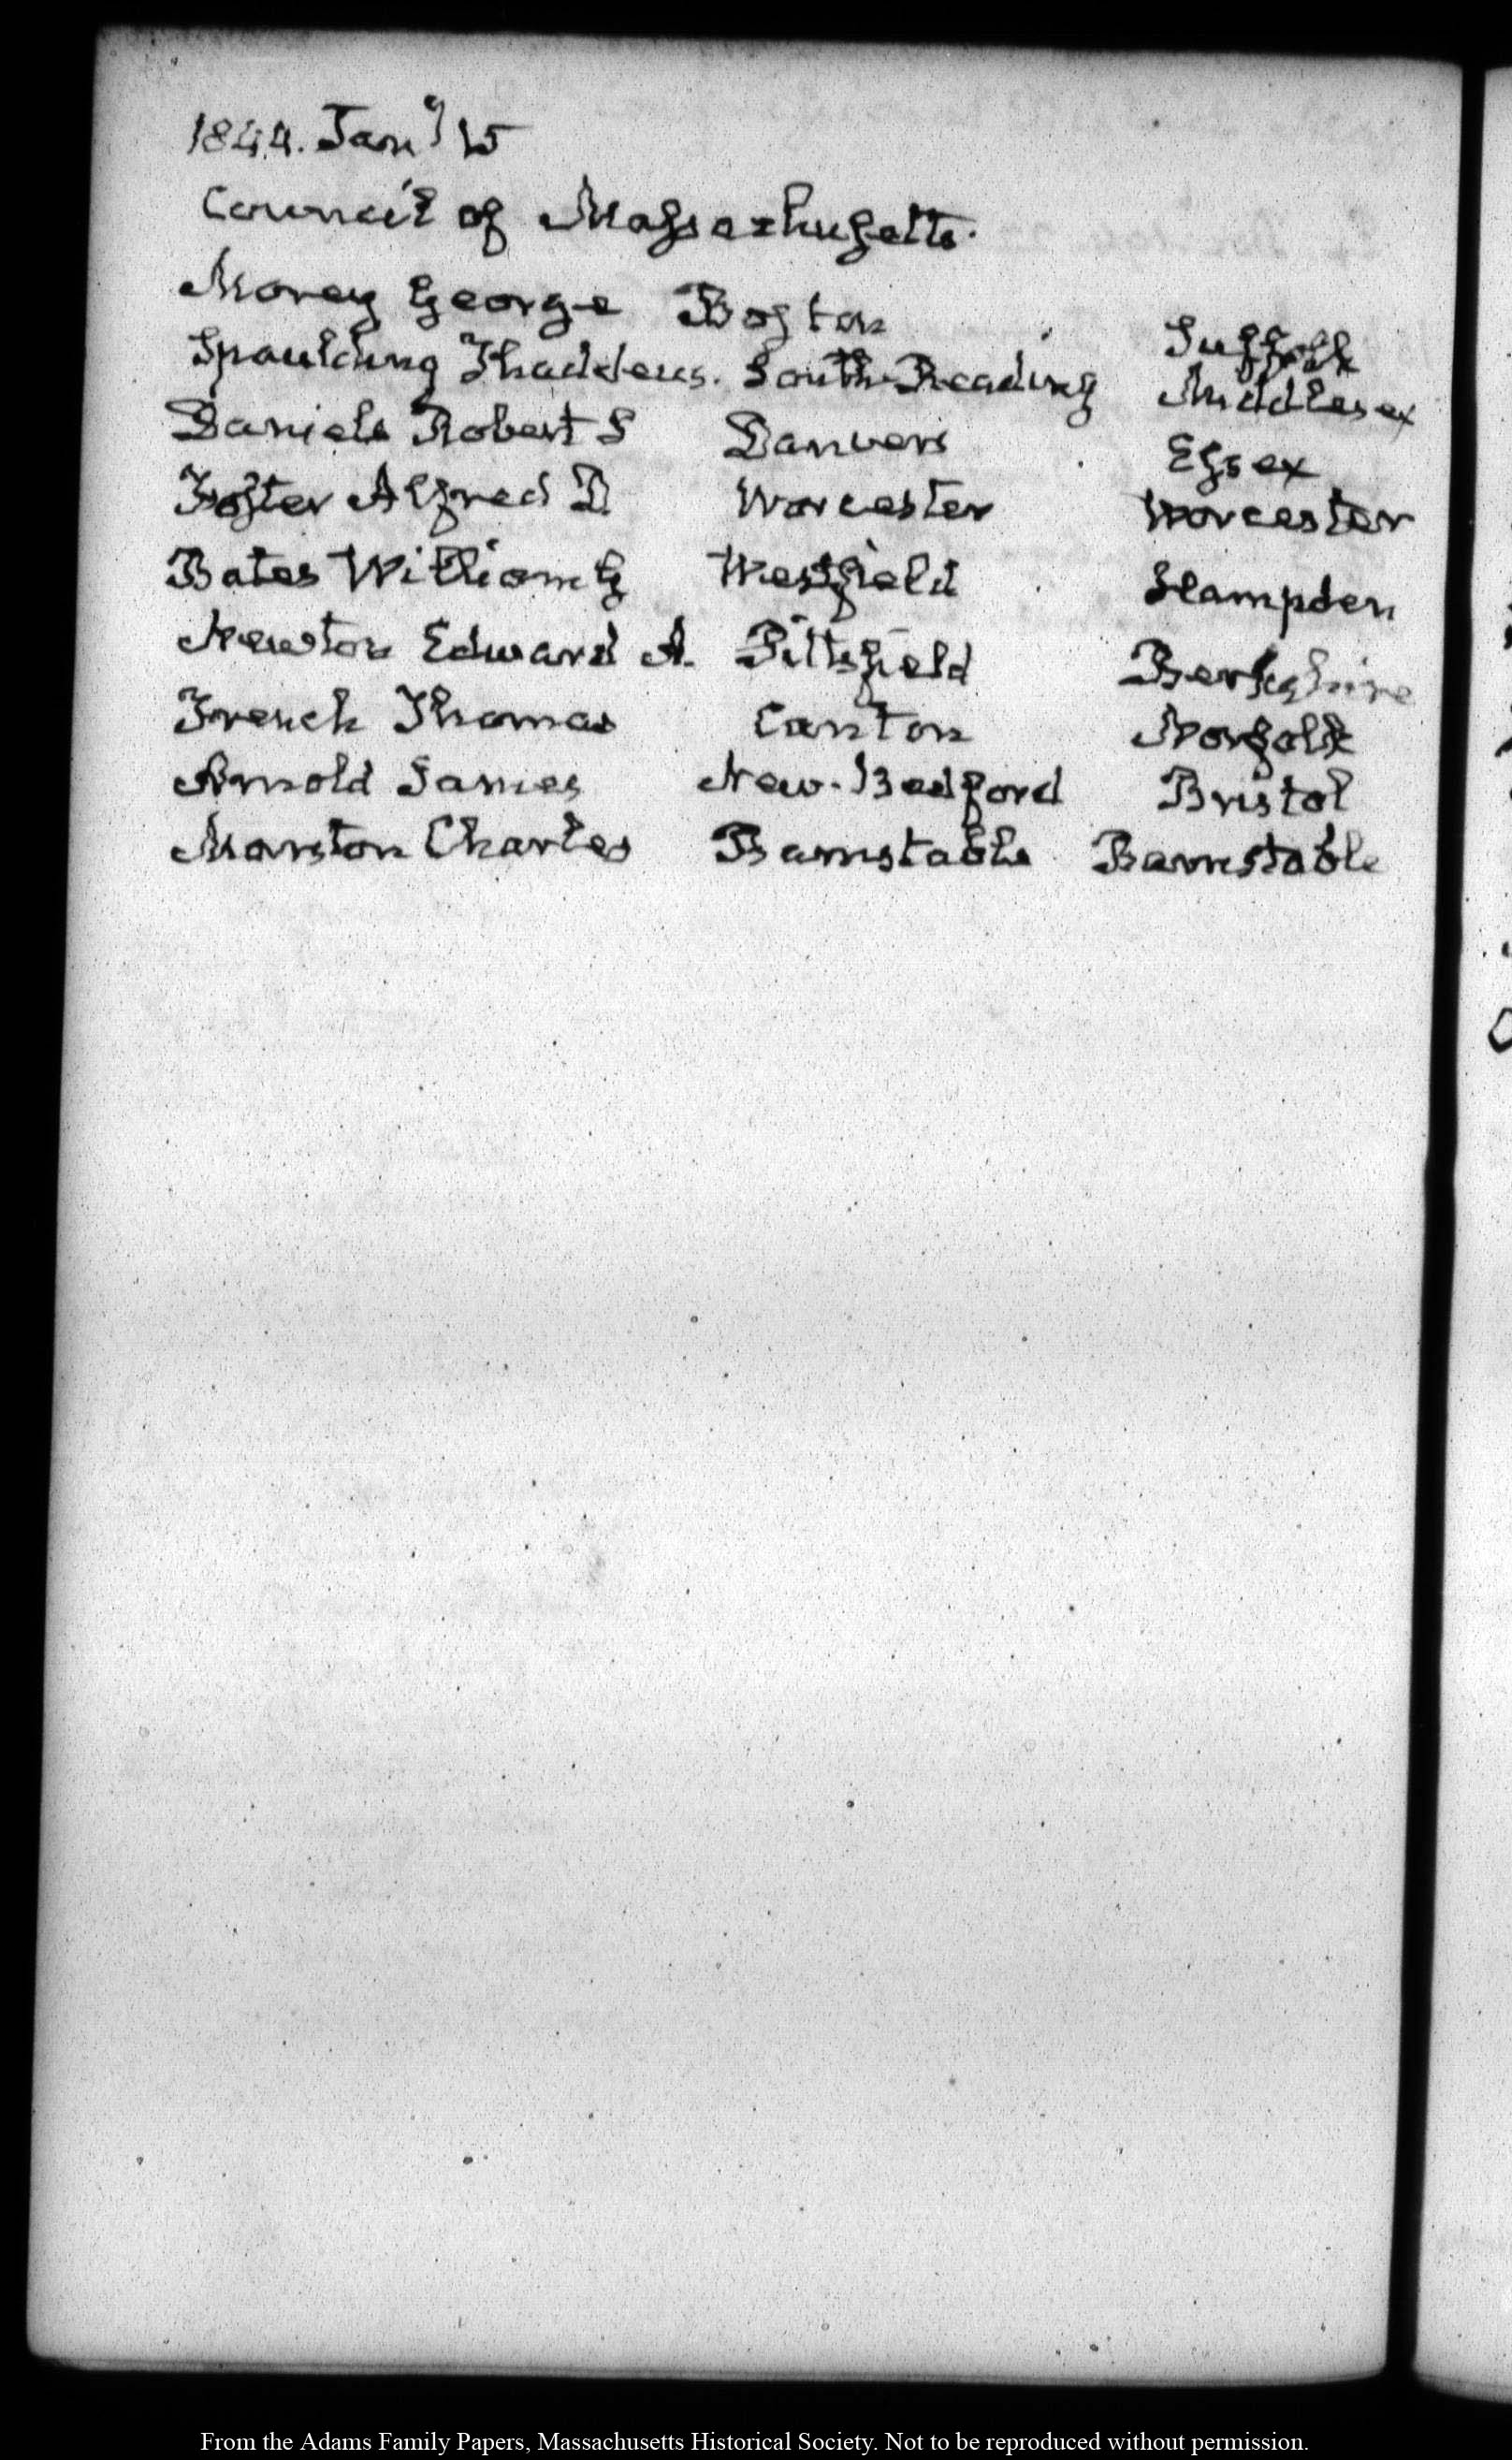 1844. Jany 15
Council of Massachusetts.
Morey George Boston Suffolk
Spaulding Thaddeus. South-Reading Middlesex
Daniels Robert S Danvers Essex
Foster Alfred D Worcester Worcester
Bates William G Westfield Hampden
Newton Edward A. Pittsfield Berkshire
French Thomas Canton Norfolk
Arnold James New-Bedford Bristol
Marston Charles Barnstable Barnstable
From the Adams Family Papers, Massachusetts Historical Society. Not to be reproduced without permission.